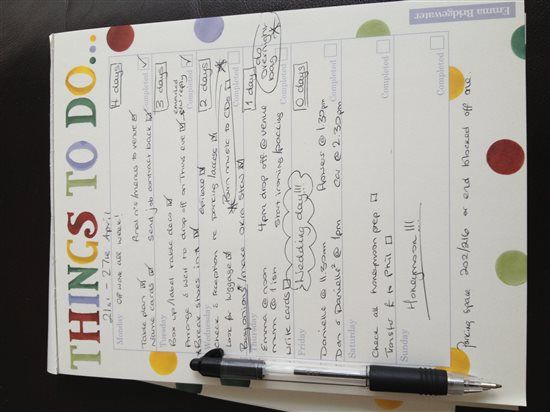 Emma Bridgewater
THINGS TO DO...
21st - 27th April
Off work all week!
Monday
4 days
Table plan
Name cards
Final n°s/menus to venue
Send job contract back
Completed
Tuesday
3 days
Box up/label table deco
Arrange & went to drop off on Thurs eve
emailed
reply
Completed
Wednesday
2 days
Break shoes in
Check & reception re parking/access
Look for luggage
Burn music to CDs
Completed
Thursday
1 day
do overnight bag
Buy onions/make Oera stew
Emma @ noon
4pm drop off @ venue
mum @ 7ish
Start ironing/packing
Write cards
Completed
Friday
0 days
Wedding day!!!
Danielle @ 11.30am
flowers @ 1.30pm
Dan & Danielle² @ 1pm
Car @ 2.30pm
Completed
Saturday
Check all honeymoon prep
Transfer £ to Phil
Completed
Sunday
Honeymoon!!!
Completed
Parking space 202/216 or end blocked off one.